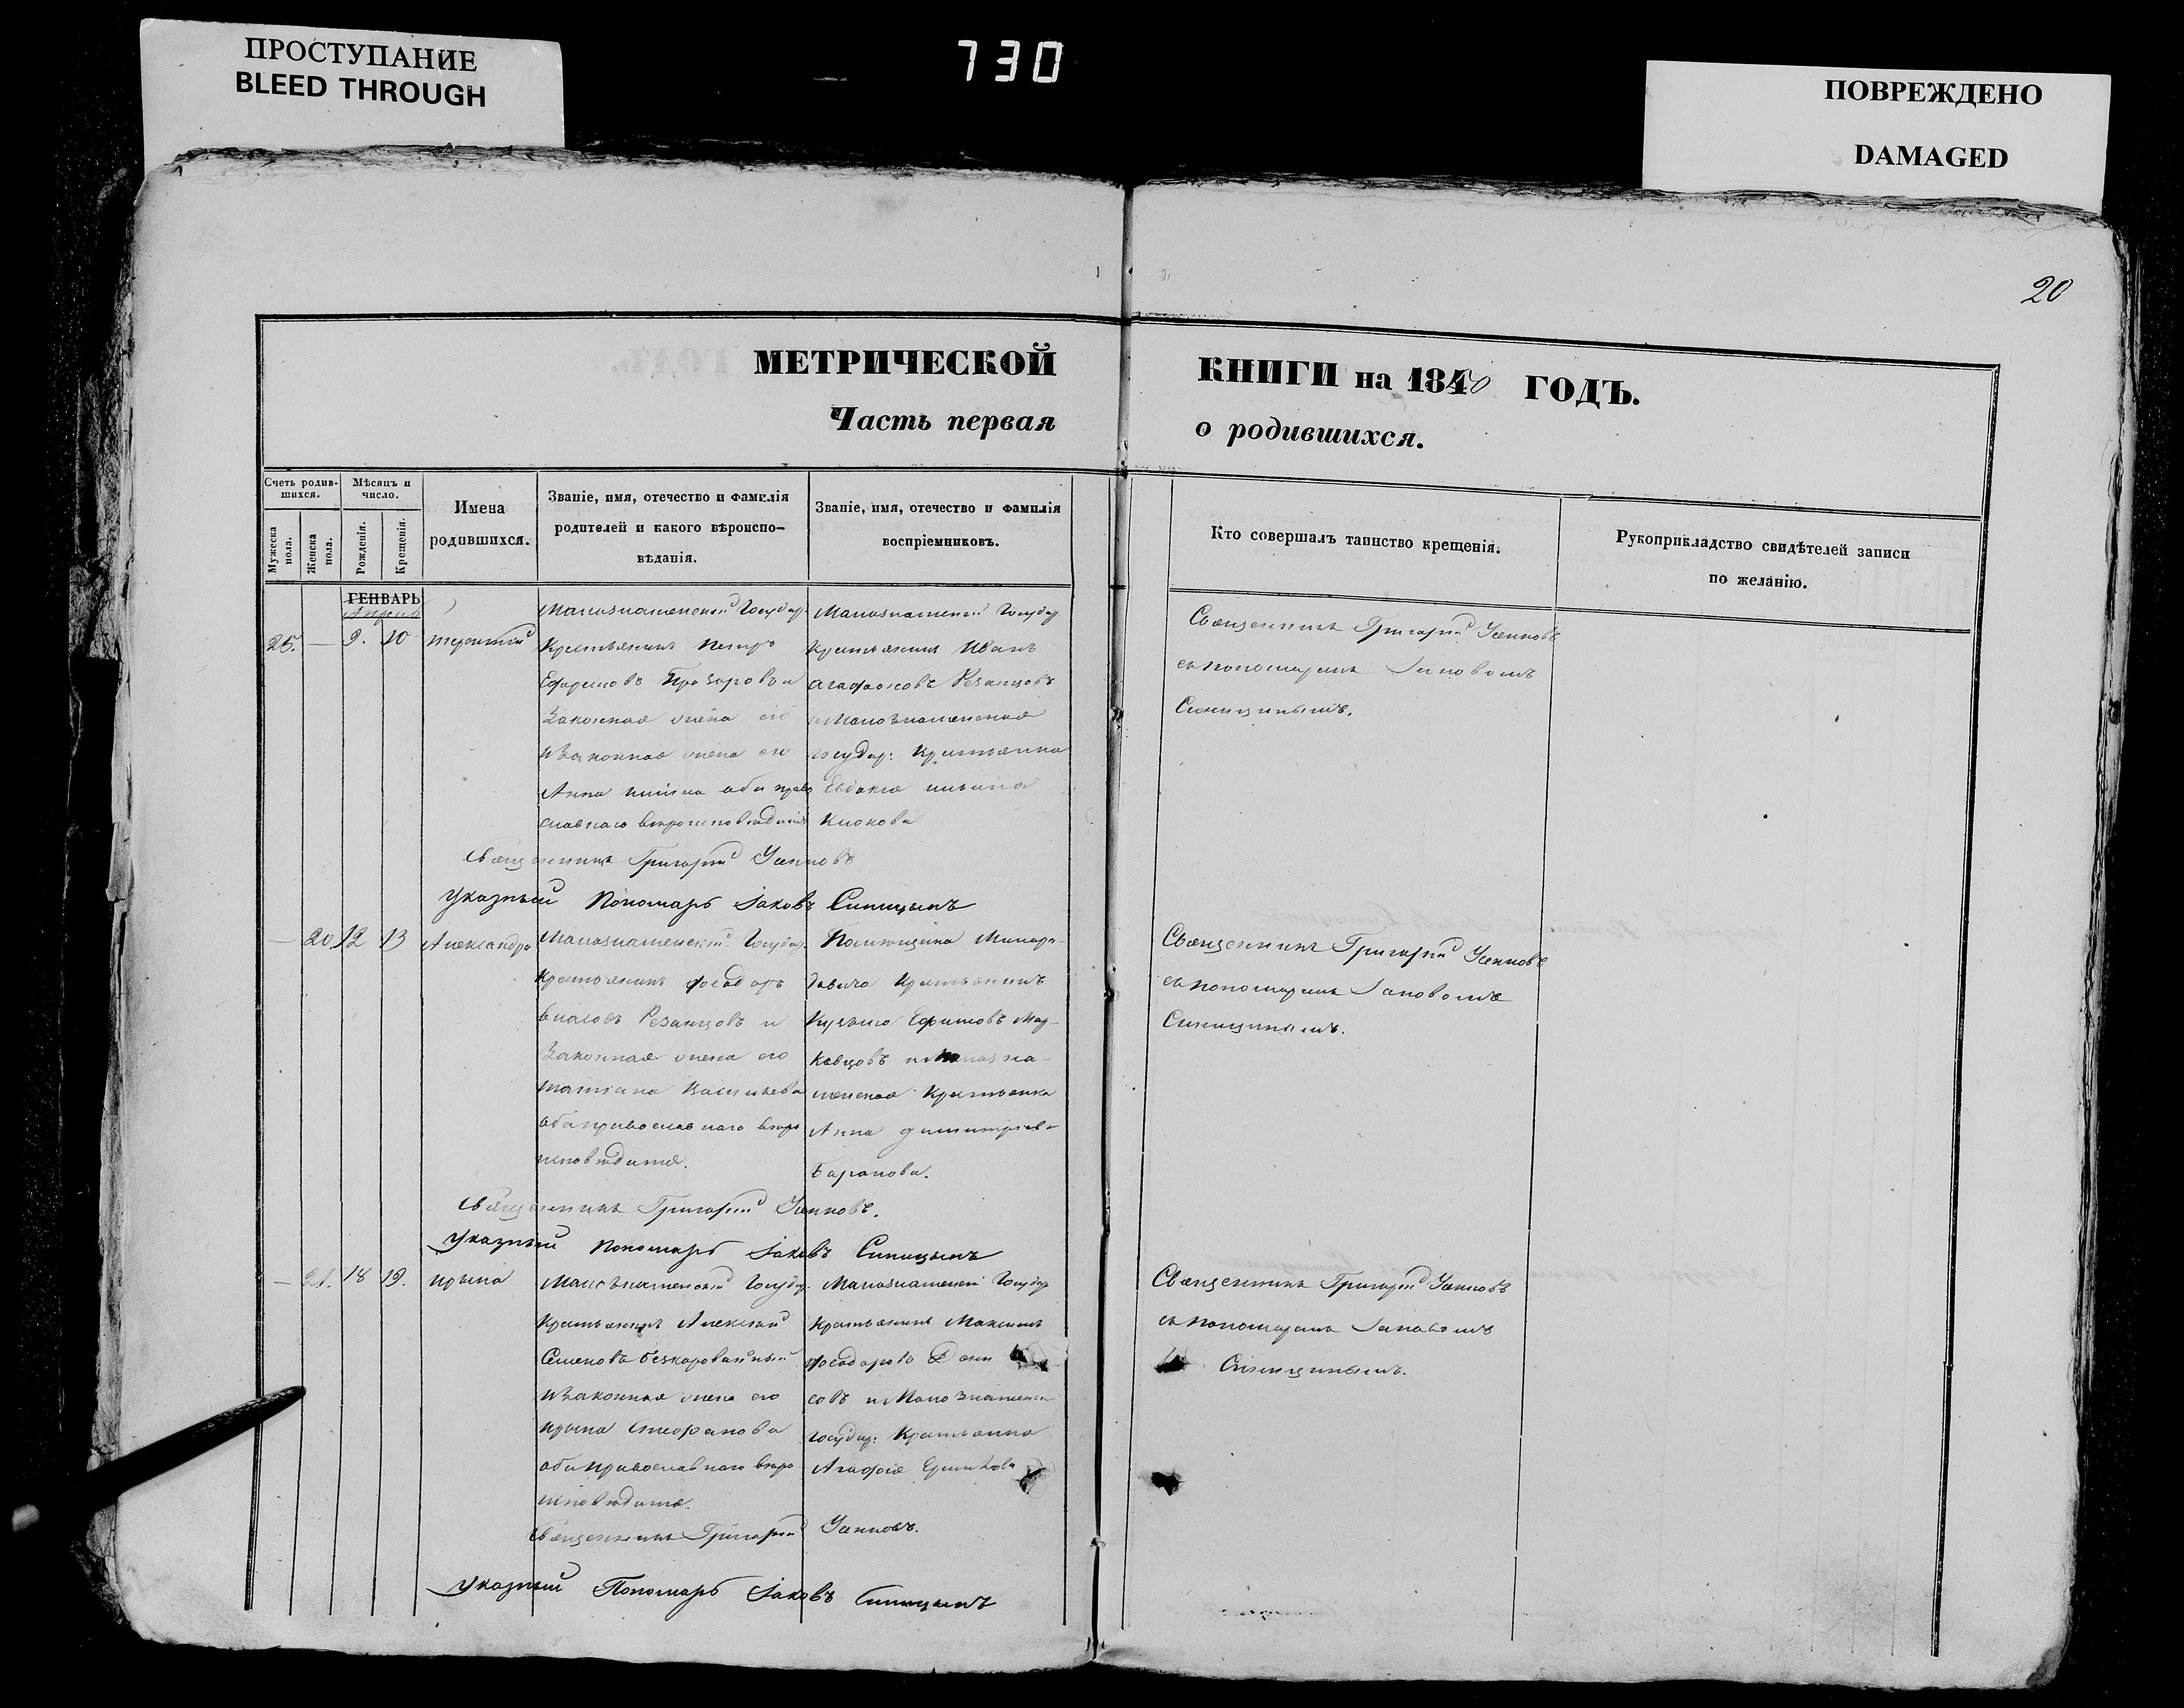 ПРОСТУПАНИЕ
BLEED THROUGH
730
ПОВРЕЖДЕНО
DAMAGED
20
МЕТРИЧЕСКОЙ КНИГИ на 1840 ГОДЪ.
Часть первая о родившихся.
Счетъ родив-
шихся.
Мужеска пола.
Женска пола.
Мѣсяцъ и
число.
Рожденія.
Крещенія.
Имена
родившихся.
Званіе, имя, отечество и фамилія
родителей и какого вѣроиспо-
вѣданія.
Званіе, имя, отечество и фамилія
воспріемниковъ.
Кто совершалъ таинство крещенія.
Рукоприкладство свидѣтелей записи
по желанію.
ГЕНВАРЬ
Апрель
25. — 9. 10 терентий
Малознаменский Государ.
Крестьянинъ Петръ
Ефремовъ и
Законная жена его
и Законная жена его
Анна оба право
славнаго вероисповедания
Малознаменский Государ
крестьянинъ Иванъ
Агафоновъ Резанцовъ
и Малознаменская
государ: Крестьянка
Евдокия
Клокова
Священникъ Григорий Усенковъ
съ пономаремъ Iаковомъ
Синицинымъ.
Священникъ Григорий Усенковъ
Указный Пономарь Iаковъ Синицынъ
— 20. 12 13 Александра
Малознаменский Государ.
Крестьянинъ Феодоръ
Власовъ Резанцовъ и
Законная жена его
татиана Васильева
оба православнаго веро
исповедания.
Помещика
крестьянинъ
Кузьма Ефимовъ Мар-
ковцовъ и Малозна-
менская Крестьянка
Анна димитриева
Баранова.
Священникъ Григорий Усенковъ
съ пономаремъ Iаковомъ
Синицинымъ.
Священникъ Григорий Усенковъ.
Указный Пономарь Iаковъ Синицынъ
— 21. 18 19. ирина
Малознаменский Государ.
Крестьянинъ Алексий
Семеновъ
и Законная жена его
ирина Стефанова
оба православнаго веро
исповедания.
Малознаменский Государ
крестьянинъ Максимъ
Феодоровъ Дени
совъ и Малознаменск
государ: Крестьянка
Агафия
Священникъ Григорий Усенковъ
съ пономаремъ Iаковомъ
Синицинымъ.
Священникъ Григорий Усенковъ.
Указный Пономарь Iаковъ Синицынъ